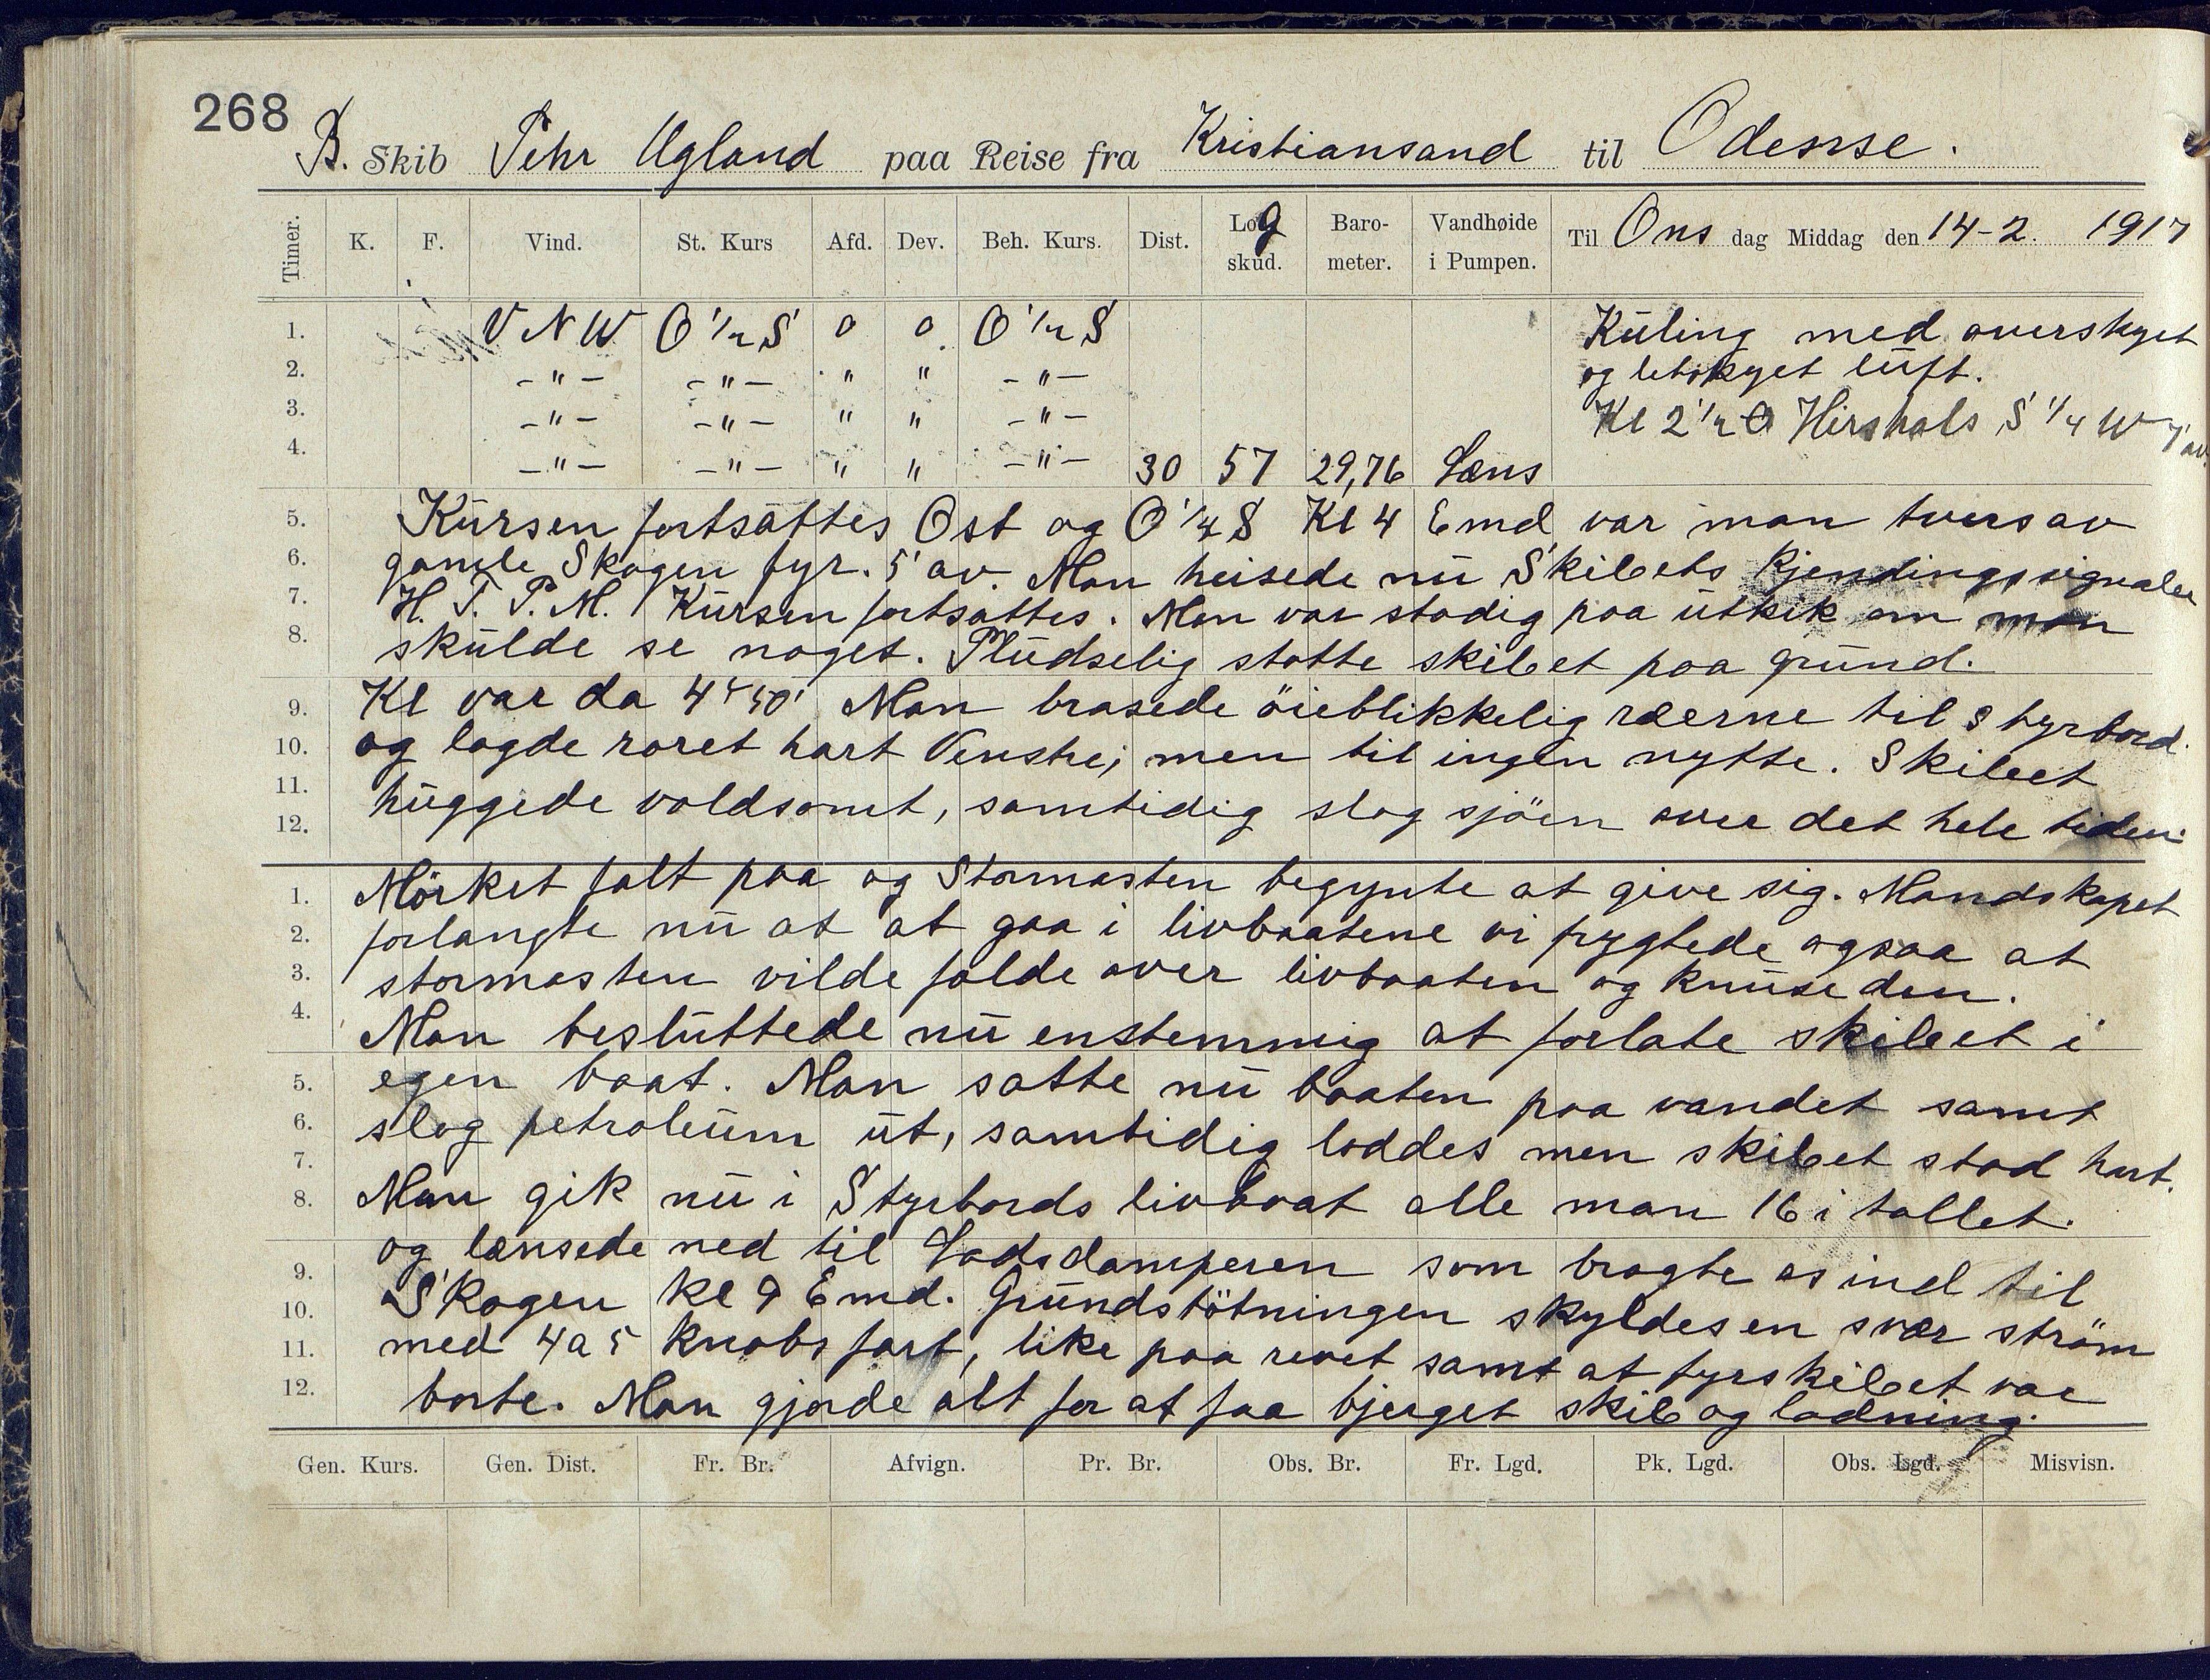 268
B. Skib Pehr Ugland paa Reise fra Kristiansand til Odense.
Timer. K. F. Vind. St. Kurs Afd. Dev. Beh. Kurs. Dist. Log skud. Baro- meter. Vandhøide i Pumpen. Til Ons dag Middag den 14-2. 1917
1. V N W O 1/2 S 0 0. O 1/2 S Kuling med overskyet
2. -"- -"- " " -"- og letskyet luft.
3. -"- -"- " " -"- Kl 2 1/2 Hirshals S 1/4 W 7' av
4. -"- -"- " " -"- 30 57 29,76 Læns
5. Kursen fortsattes Ost og O 1/4 S Kl 4 Emd var man tvers av
6. gamle Skagen fyr. 5' av. Man heisede nu Skibets Kjendingssignaler
7. H. T. P. M. Kursen fortsattes. Man var stadig paa utkik om man
8. skulde se noget. Pludselig støtte skibet paa grund.
9. Kl var da 4 Man brasede öieblikkelig ræerne til styrbord
10. og lagde roret hart Venstre; men til ingen nytte. Skibet
11. huggede voldsomt, samtidig slog sjöen over det hele tiden.
12.
1. Mörket falt paa og Stormasten begynte at give sig. Mandskapet
2. forlangte nu at at gaa i livbaatene vi frygtede ogsaa at
3. stormasten vilde falde over livbaaten og knuse den.
4. Man besluttede nu enstemmig at forlate skibet i
5. egen baat. Man satte nu baaten paa vandet samt
6. slog petroleum ut, samtidig loddes men skibet stod hart.
7.
8. Man gik nu i Styrbords livbaat alle man 16 i tallet.
9. og lænsede ned til Lodsdamperen som bragte os ind til
10. Skagen kl 9 Emd. Grundstötningen skyldes en svær ström
11. med 4 a 5 knobs fart, like paa revet samt at fyrskibet var
12. borte. Man gjorde alt for at faa bjerget skib og ladning.
Gen. Kurs. Gen. Dist. Fr. Br. Afvign. Pr. Br. Obs. Br. Fr. Lgd. Pk. Lgd. Obs. Lgd. Misvisn.